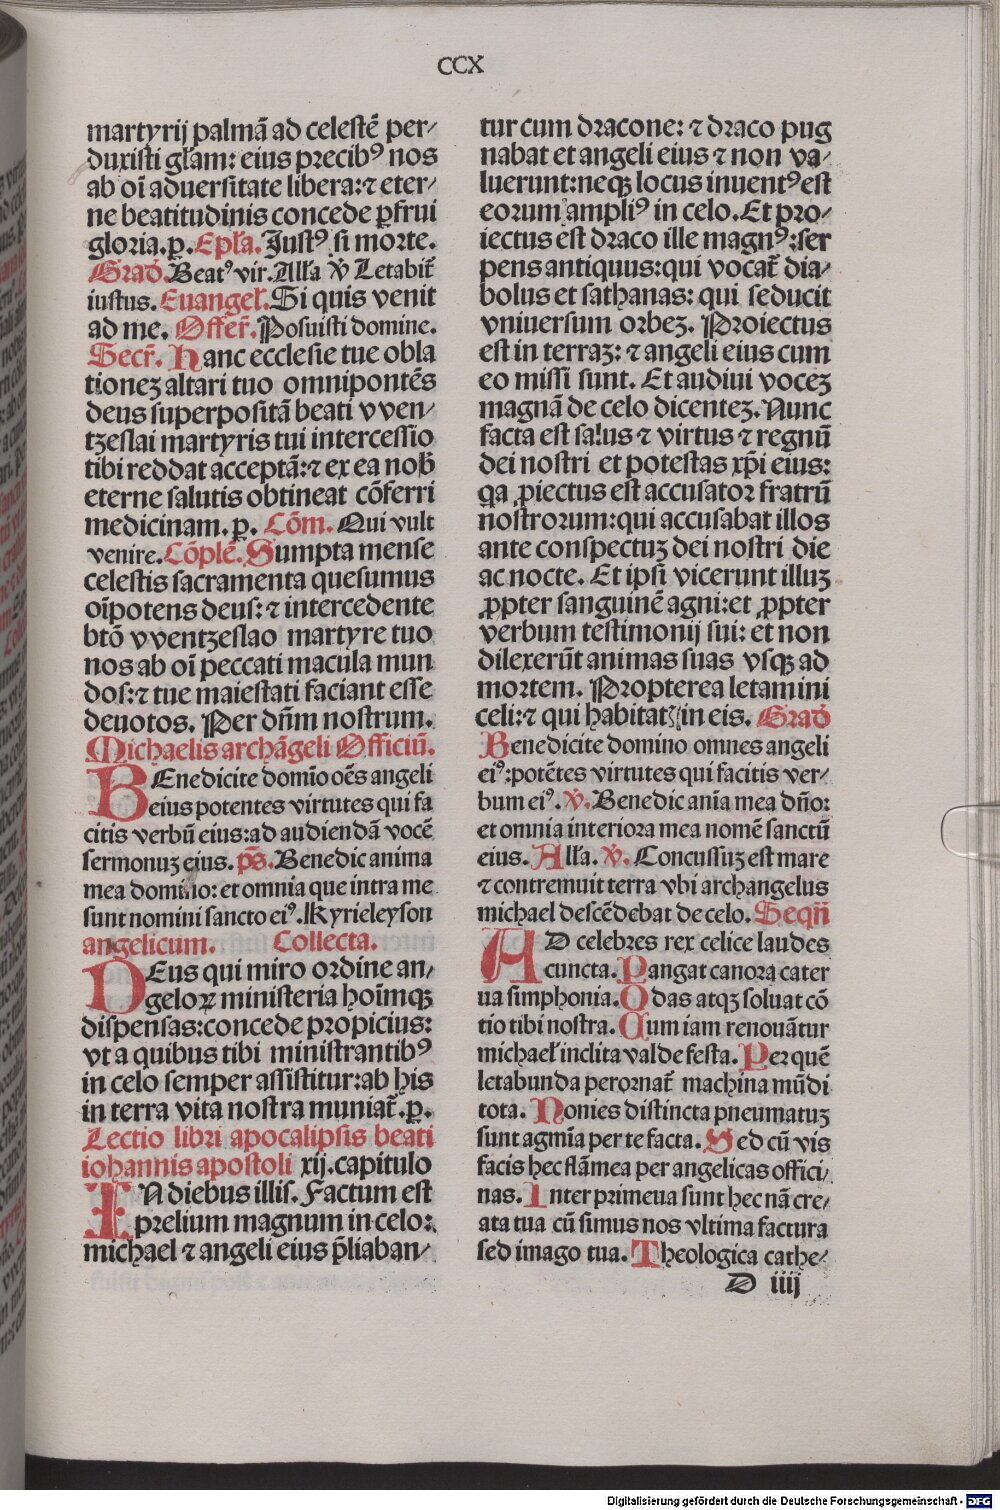 CCX
martyrij palmā ad celestē per⸗
duxisti gl̄am: eius precibꝰ nos
ab oī aduersitate libera: ⁊ eter⸗
ne beatitudinis concede ꝑfrui
gloria. p. Epl̄a. Justꝰ si morte.
Grad̄. Beatꝰ vir. All̄a ℣ Letabit̄
iustus. Euangel̄. Si quis venit
ad me. Offer̄. Posuisti domine.
Secr̄. Hanc ecclesie tue obla
tionez altari tuo omnipontēs
deus superpositā beati vven⸗
tzeslai martyris tui intercessio
tibi reddat acceptā: ⁊ ex ea nob̄
eterne salutis obtineat cōferri
medicinam. p. Cōm. Qui vult
venire. Cōplē. Sumpta mense
celestis sacramenta quesumus
oīpotens deus: ⁊ intercedente
btō vventzeslao martyre tuo
nos ab oī peccati macula mun
dos: ⁊ tue maiestati faciant esse
deuotos. Per dn̄m nostrum.
Michaelis archāgeli Officiū.
BEnedicite domīo oēs angeli
eius potentes virtutes qui fa
citis verbū eius: ad audiendā vocē
sermonuz eius. p̄s. Benedic anima
mea domino: et omnia que intra me
sunt nomini sancto eiꝰ. Kyrieleyson
angelicum. Collecta.
DEus qui miro ordine an⸗
geloꝝ ministeria hoīmqꝫ
dispensas: concede propicius:
vt a quibus tibi ministrantibꝰ
in celo semper assistitur: ab his
in terra vita nostra muniat̄. p.
Lectio libri apocalipsis beati
iohannis apostoli xij. capitulo
IN diebus illis. Factum est
prelium magnum in celo:
michael ⁊ angeli eius p̄liaban⸗
tur cum dracone: ⁊ draco pug
nabat et angeli eius ⁊ non va⸗
luerunt: neqꝫ locus inuentꝰ est
eorum ampliꝰ in celo. Et pro⸗
iectus est draco ille magnꝰ: ser
pens antiquus: qui vocat̄ dia⸗
bolus et sathanas: qui seducit
vniuersum orbez. Proiectus
est in terraz: ⁊ angeli eius cum
eo missi sunt. Et audiui vocez
magnā de celo dicentez. Nunc
facta est salus ⁊ virtus ⁊ regnū
dei nostri et potestas xp̄i eius:
qa ꝓiectus est accusator fratrū
nostrorum: qui accusabat illos
ante conspectuz dei nostri die
ac nocte. Et ipsi vicerunt illuz
ꝓpter sanguinē agni: et ꝓpter
verbum testimonij sui: et non
dilexerūt animas suas vsqꝫ ad
mortem. Propterea letamini
celi: ⁊ qui habitat̄ in eis. Grad̄
Benedicite domino omnes angeli
eiꝰ: potētes virtutes qui facitis ver⸗
bum eiꝰ. ℣. Benedic anīa mea dn̄o:
et omnia interiora mea nomē sanctū
eius. All̄a. ℣. Concussuz est mare
⁊ contremuit terra vbi archangelus
michael descēdebat de celo. Seqn̄
AD celebres rex celice laudes
cuncta. Pangat canora cater
ua simphonia. Odas atqꝫ soluat cō
tio tibi nostra. Cum iam renouātur
michael̄ inclita valde festa. Per quē
letabunda perornat̄ machina mūdi
tota. Nonies distincta pneumatuz
sunt agmīa per te facta. Sed cū vis
facis hec flāmea per angelicas offici⸗
nas. Inter primeua sunt hec nā cre⸗
ata tua cū simus nos vltima factura
sed imago tua. Theologica cathe⸗
D iiij
Digitalisierung gefördert durch die Deutsche Forschungsgemeinschaft - DFG